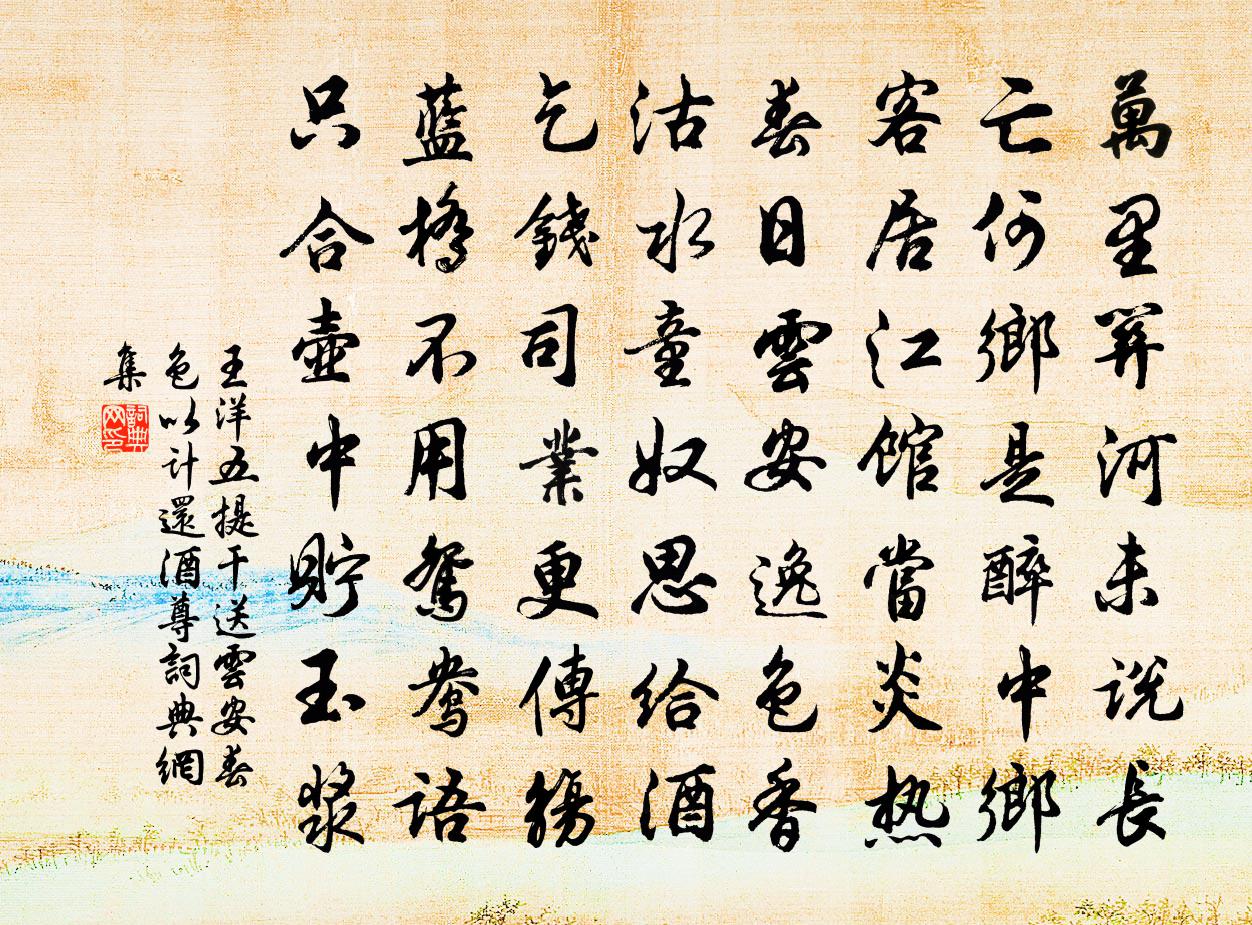 萬里關河未說長
亡何鄉是醉中鄉
客居江館當炎热
春日雲安逸色香
沽水童奴思給酒
乞錢司業更傳觴
藍橋不用鴛鴦語
只合壺中貯玉漿
王洋五提干送雲安春
色以計還酒尊詞典網
集
詞典网印